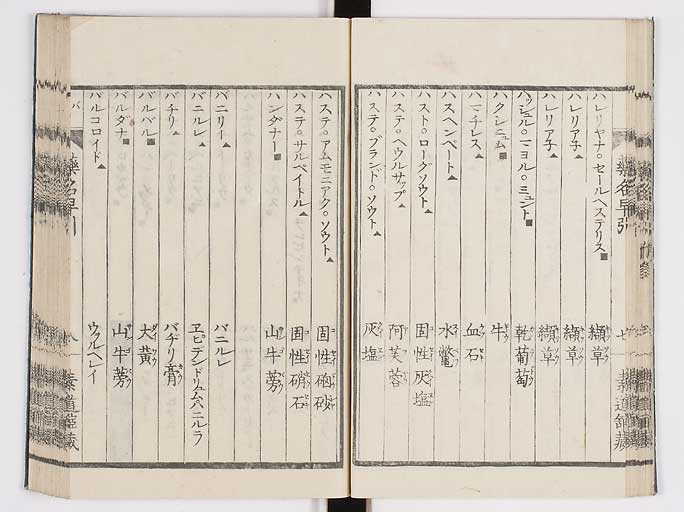 ハレリヤナ。セールヘステリス■ 纈草
ハレリア子▲ 纈草
ハレリア子▲ 纈草
■ 乾葡萄
ハクシニュム■ 牛
ハマチレス▲ 血石
ハスヘンベート▲ 水鼈
ハスト。ローグソウト▲ 固性灰塩
ハステ。ヘウルサップ▲ 阿芙蓉
ハステ。ブランド。ソウト▲ 灰塩
ハステ。アムモニアク。ソウト▲ 固性磠砂
ハステ。サルペイトル▲ 固性硝石
ハンダナー■ 山牛蒡
バニリー▲ バニルレ
バニルレ▲ ヱピデンドリュムバニルラ
バチリ▲ バヂリ膏
バルバル■ 大黄
バルダナ■ 山牛蒡
バルコロイド▲ ウァルヘレイ
バ 藥名早引 八